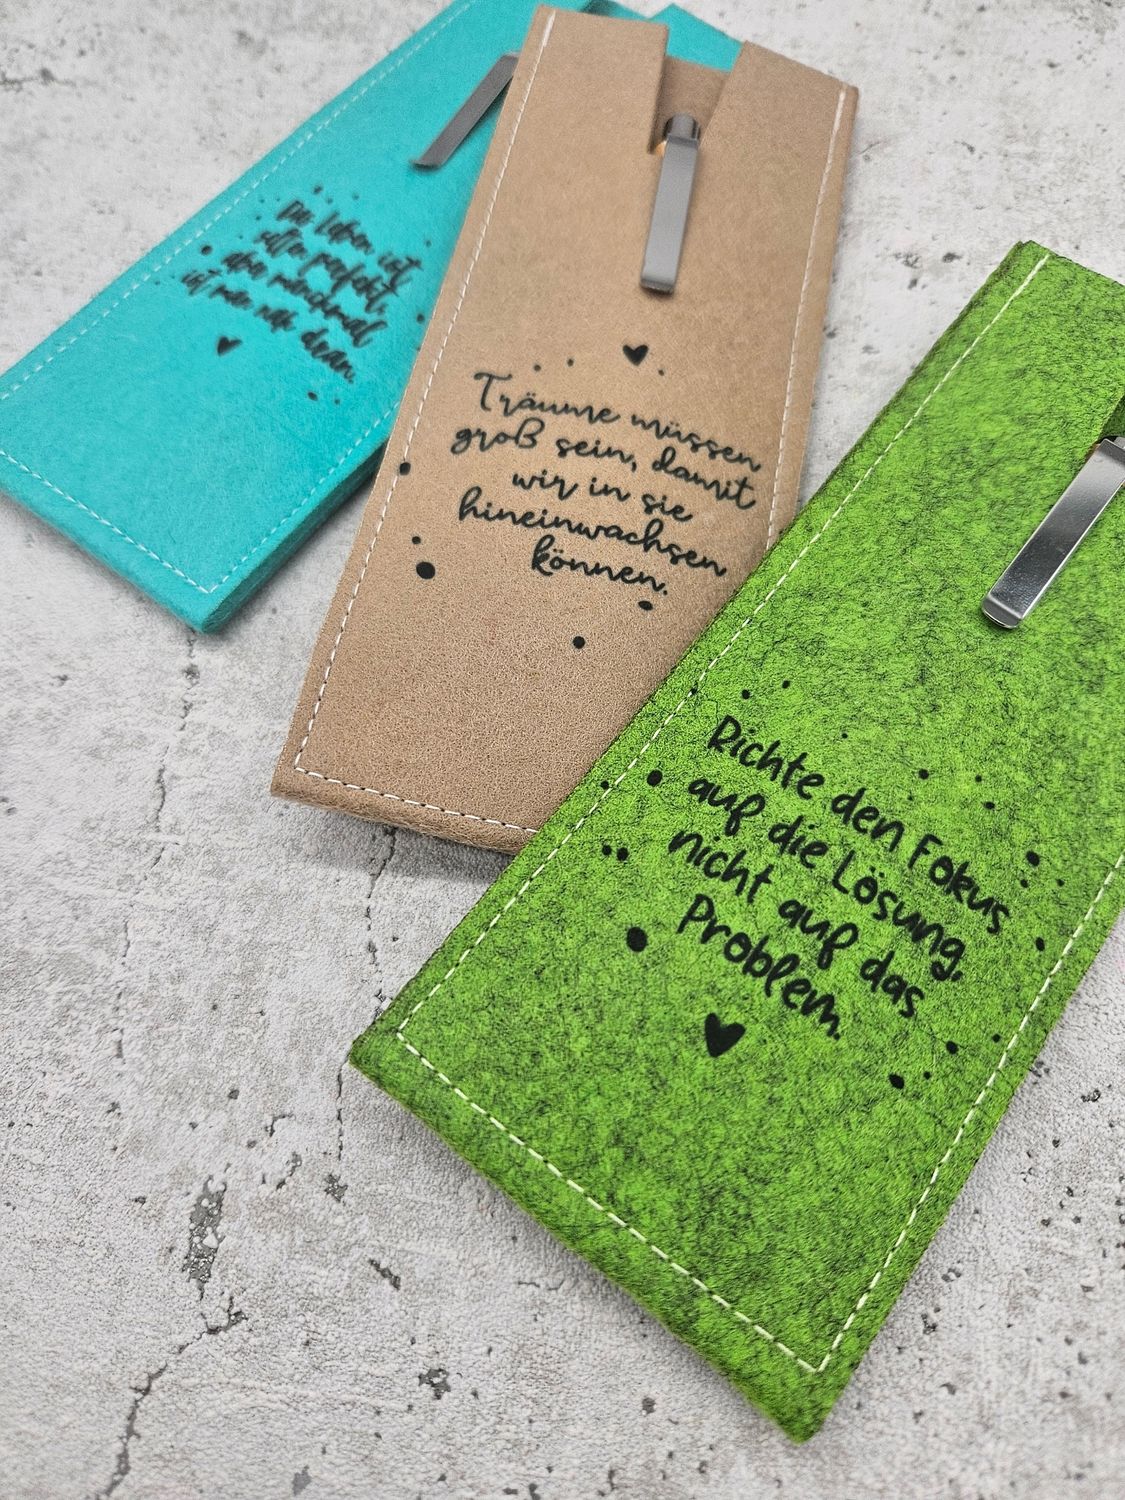 Das Leben ist
selten perfekt,
aber manchmal
ist man nah dran.
Träume müssen
groß sein, damit
wir in sie
hineinwachsen
können.
Richte den Fokus
auf die Lösung,
nicht auf das
Problem.